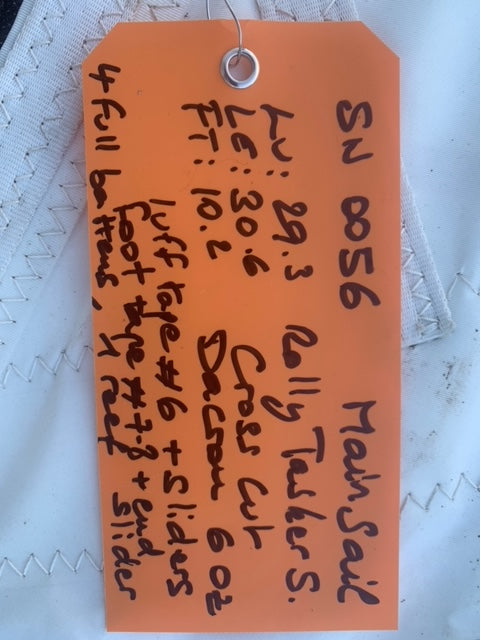 SN 0056 Main Sail
LU: 29.3 Rolly Tasker S.
LE: 30.6 Cross Cut
FT: 10.2 Dacron 6 oz
luff tape #6 + sliders
foot tape #7-8 + end slider
4 full battens, 1 reef